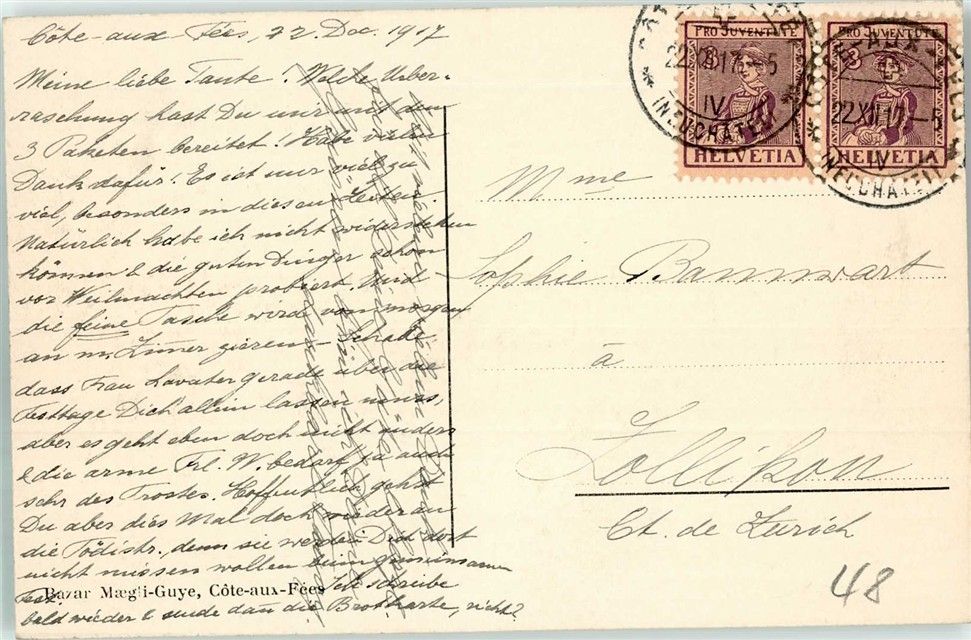 Côte-aux-Fées, 22. Dec. 1917
Meine liebe Tante! Welche Ueber-
raschung hast Du mir mit den
3 Paketen bereitet! Habe vielen
Dank dafür! Es ist nur viel zu
viel, besonders in diesen Zeiten.
Natürlich habe ich nicht widerstehen
können & die guten Dinger schon
vor Weihnachten probiert. Und
die feine Tasche wird von morgen
an m. Zimmer zieren. Schade
dass Frau Lavater gerade über die
Festtage Dich allein lassen muss,
aber es geht eben doch nicht anders
& die arme Frl. W. bedarf ja auch
sehr des Trostes. Hoffentlich gehst
Du aber dies Mal doch wieder an
die Tödistr. denn sie werden Dich dort
nicht missen wollen beim gemeinsamen
Fest. Ich schreibe
bald wieder & sende dan die Brotkarte, nicht?
Bazar Mægli-Guye, Côte-aux-Fées
PRO JUVENTUTE
3
HELVETIA
PRO JUVENTUTE
3
HELVETIA
22 XII 17 – 5
IV
(NEUCHÂTEL)
22 XII 17 – 5
IV
(NEUCHÂTEL)
Mme
Sophie Bannwart
à
Zollikon
Ct. de Zurich
48